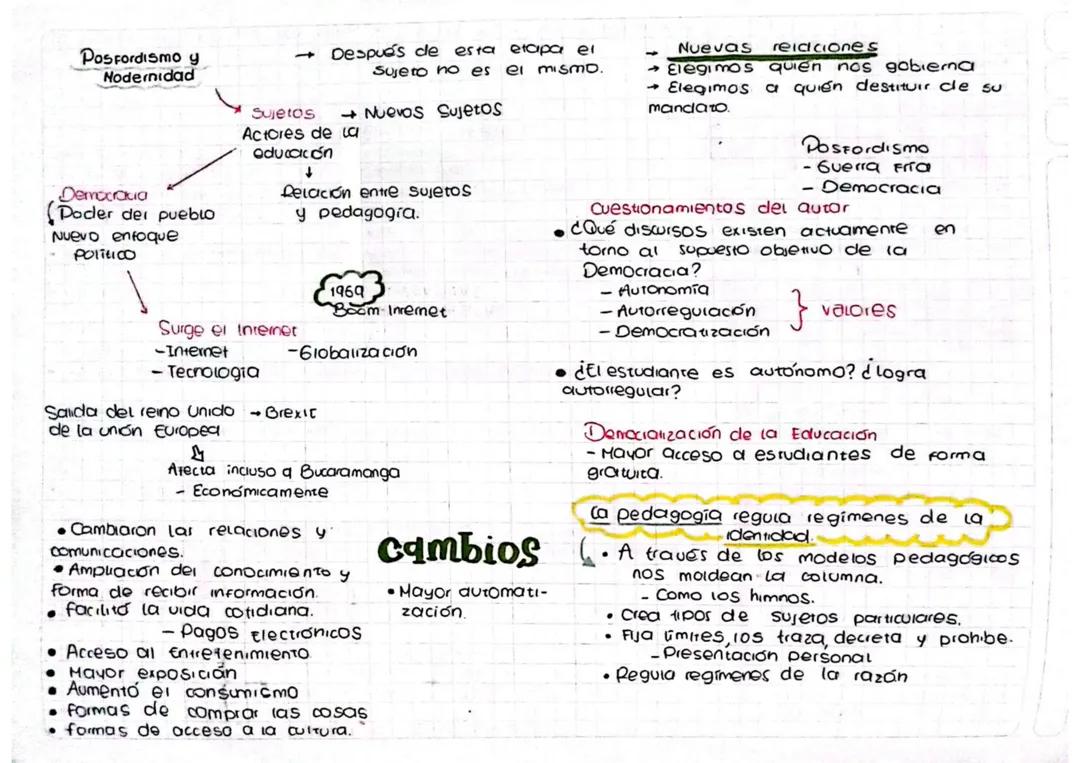 Posfordismo y
Modernidad
→ Después de esta etapa el
sujeto no es el mismo.
Sujetos → Nuevos Sujetos
Actores de la
educación
↓
Relación entre sujetos
y pedagogía.
Democracia
Poder del pueblo
Nuevo enfoque
político
1969
Boom Internet
Surge el Internet
- Internet
- Globalización
- Tecnologia
Salida del reino Unido → Brexit
de la unión Europea
Afecta incluso a Bucaramanga
- Económicamente
• Cambiaron las relaciones y
comunicaciones.
• Ampliación del conocimiento y
forma de recibir información.
• facilitó la vida cotidiana.
- Pagos Electrónicos
• Acceso al Entretenimiento
• Mayor exposición
• Aumentó el consumismo
• formas de comprar las cosas
• formas de acceso a la cultura.
cambios
• Mayor automati-
zación.
→ Nuevas relaciones
→ Elegimos quién nos gobierna
→ Elegimos a quién destituir de su
mandato.
Posfordismo
- Guerra Fría
- Democracia
Cuestionamientos del autor
• ¿Qué discursos existen actuamente en
torno al supuesto objetivo de la
Democracia?
- Autonomía
- Autorregulación
- Democratización
} valores
• ¿El estudiante es autónomo? ¿logra
autorregular?
Denocialización de la Educación
- Mayor acceso a estudiantes de forma
gratuita.
La pedagogía regula regímenes de la
identidad.
• A través de los modelos pedagógicos
nos moldean la columna.
- Como los himnos.
• Crea tipos de sujetos particulares.
• Fija límites, los traza, decreta y prohibe.
- Presentación personal
• Regula regímenes de la razón